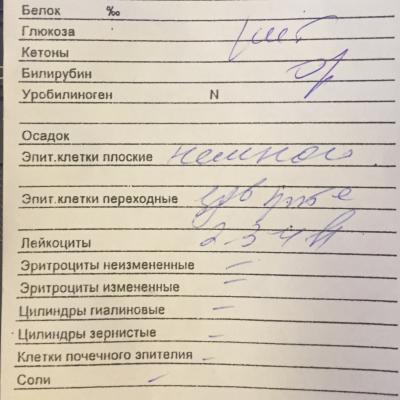 Белок ‰
Глюкоза
Кетоны
Билирубин
Уробилиноген N
Осадок
Эпит.клетки плоские немного
Эпит.клетки переходные
Лейкоциты 2-3-4
Эритроциты неизмененные –
Эритроциты измененные –
Цилиндры гиалиновые –
Цилиндры зернистые –
Клетки почечного эпителия –
Соли –